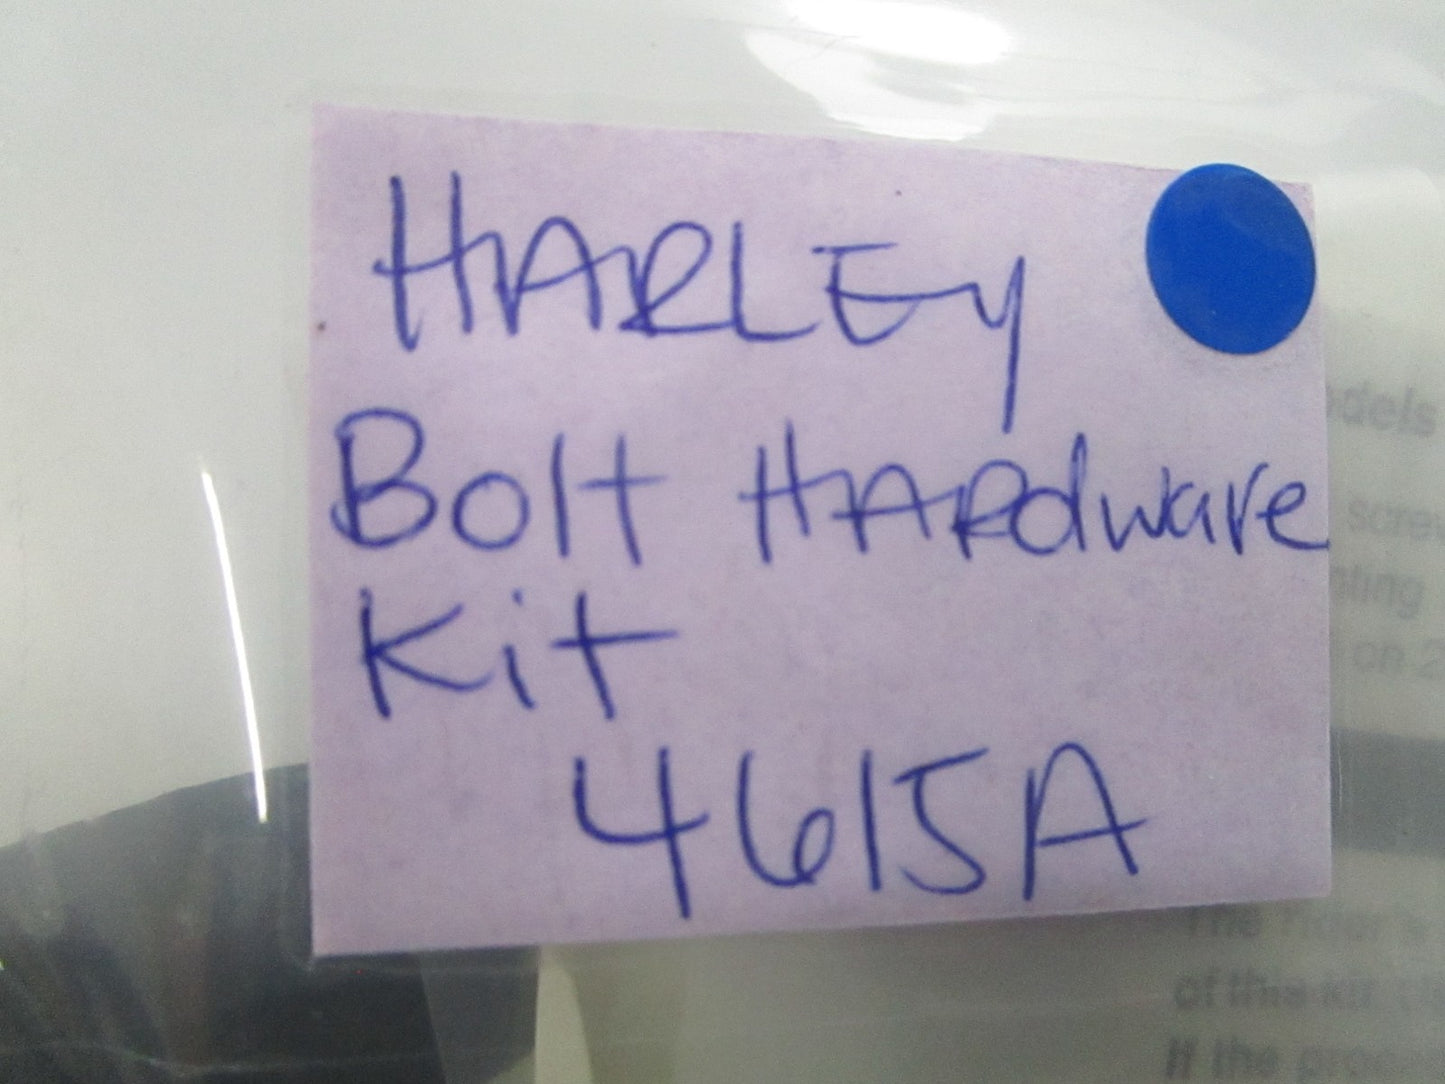 HARLEy
Bolt HARdware
Kit
4615A
odels
screw
on 2
of this kit
If the